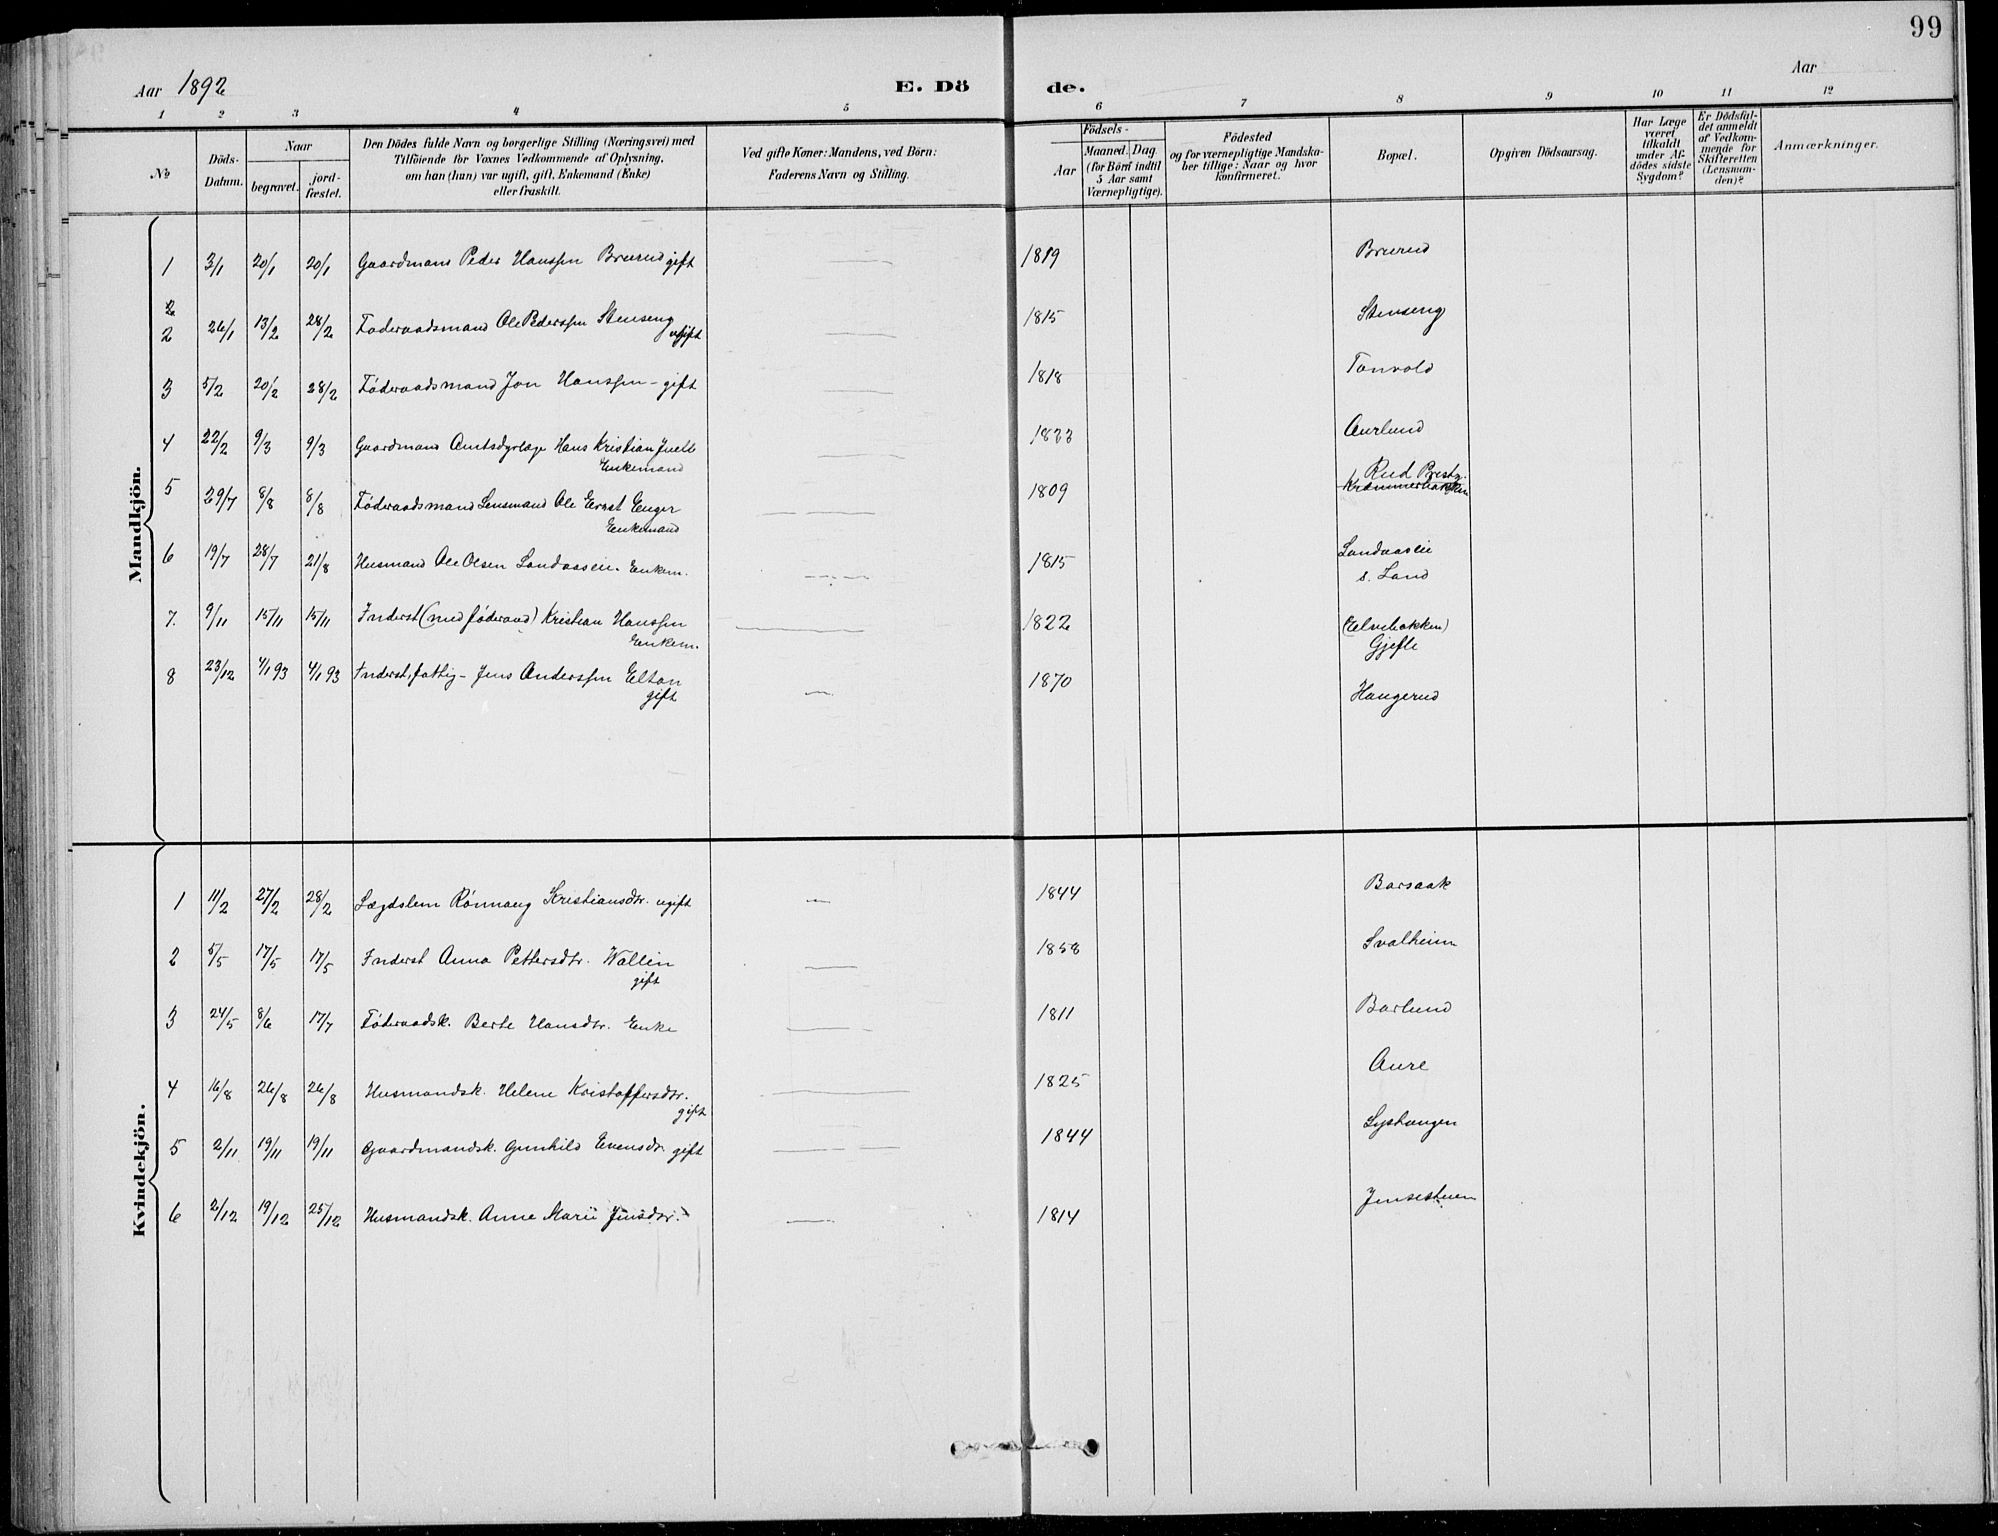 99
Aar 1892
E. Dö
de.
Aar
1 2 3 4 5 6 7 8 9 10 11 12
No
Döds-
Datum.
Naar
begravet.
jord-
fæstet.
Den Dödes fulde Navn og borgerlige Stilling (Næringsvei) med
Tilföiende for Voxnes Vedkommende af Oplysning,
om han (hun) var ugift, gift, Enkemand (Enke)
eller fraskilt.
Ved gifte Koner: Mandens, ved Börn:
Faderens Navn og Stilling.
Födsels-
Aar
Maaned. Dag.
(for Börn indtil
5 Aar samt
Værnepligtige).
Födested
og for værnepligtige Mandska-
ber tillige: Naar og hvor
konfirmeret.
Bopæl.
Opgiven Dödsaarsag.
Har Læge
været
tilkaldt
under Af-
dödes sidste
Sygdom?
Er Dödsfal-
det anmeldt
af Vedkom-
mende for
Skifteretten
(Lensman-
den)?
Anmærkninger.
Mandkjön.
1 3/1 20/1 20/1 Gaardmand Peder Hanssen Brurud gift 1819 Bruerud
2
2 26/1 13/2 28/2 Føderaadsmand Ole Pederssen Stenseng 1815 Stenseng
ugift
3 5/2 20/2 28/2 Føderaadsmand Jon Hanssen - gift 1818 Tonvold
4 22/2 9/3 9/3 Gaardmand Amtsdyrlæge Hans Kristian Juell 1823 Aurlund
Enkemand
5 29/7 8/8 8/8 Føderaadsmand Lensmand Ole Ernst Enger 1809 Rud Prestg.
Kræmmerbakken
Enkemand
6 19/7 28/7 21/8 Husmand Ole Olsen Landaaseie. Enkem. 1815 Landaaseie
s. Land
7. 9/11 15/11 15/11 Inderst (med føderaad) Kristian Hanssen 1822 (Elvebakken)
Enkem. Gjefle
8 23/12 4/1 93 4/1 93 Inderst, fattig - Jens Anderssen Elton 1870 Haugerud
gift
Kvindekjön.
1 11/2 27/2 28/2 Lægdslem Rønnaug Kristiansdtr. ugift 1844 Barsaak
2 5/5 17/5 17/5 Inderst Anna Pettersdtr. Wallin 1858 Svalheim
gift
3 24/5 8/6 17/7 Føderaadsk. Berte Hansdtr. Enke 1811 Barlund
4 16/8 26/8 26/8 Husmandsk. Helene Kristoffersdtr. 1825 Aure
gift
5 2/11 19/11 19/11 Gaardmandsk. Gunhild Evensdtr. gift 1844 Lyshaugen
6 2/12 19/12 25/12 Husmandsk. Anne Marie Jensdtr. 1814 Jensestuen